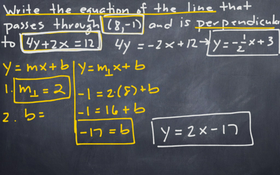 Write the equation of the line that
passes through (8,-1) and is perpendicular
to 4y+2x=12 4y=-2x+12→ y=-½x+3
y=mx+b
1. m⊥=2
2. b=
y=m⊥x+b
-1=2·(8)+b
-1=16+b
-17=b
y=2x-17